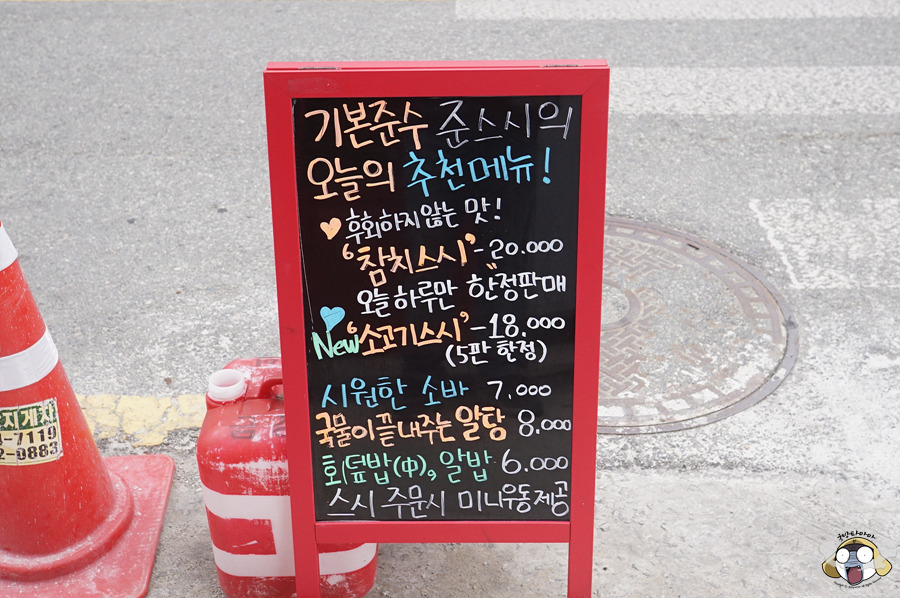 기본준수 준스시의
오늘의 추천메뉴!
후회하지않는 맛!
'참치스시'-20.000
오늘하루만 "한정판매
New '소고기스시'-18.000
(5판 한정)
시원한 소바 7.000
국물이 끝내주는 알탕 8.000
회덮밥(中), 알밥 6.000
스시 주문시 미니우동제공
지게차
-7119
2-0883